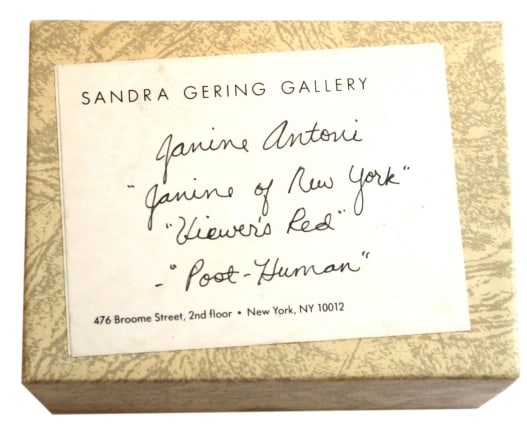 SANDRA GERING GALLERY
Janine Antoni
"Janine of New York"
"Viewer's Red"
- "Post-Human"
476 Broome Street, 2nd floor • New York, NY 10012